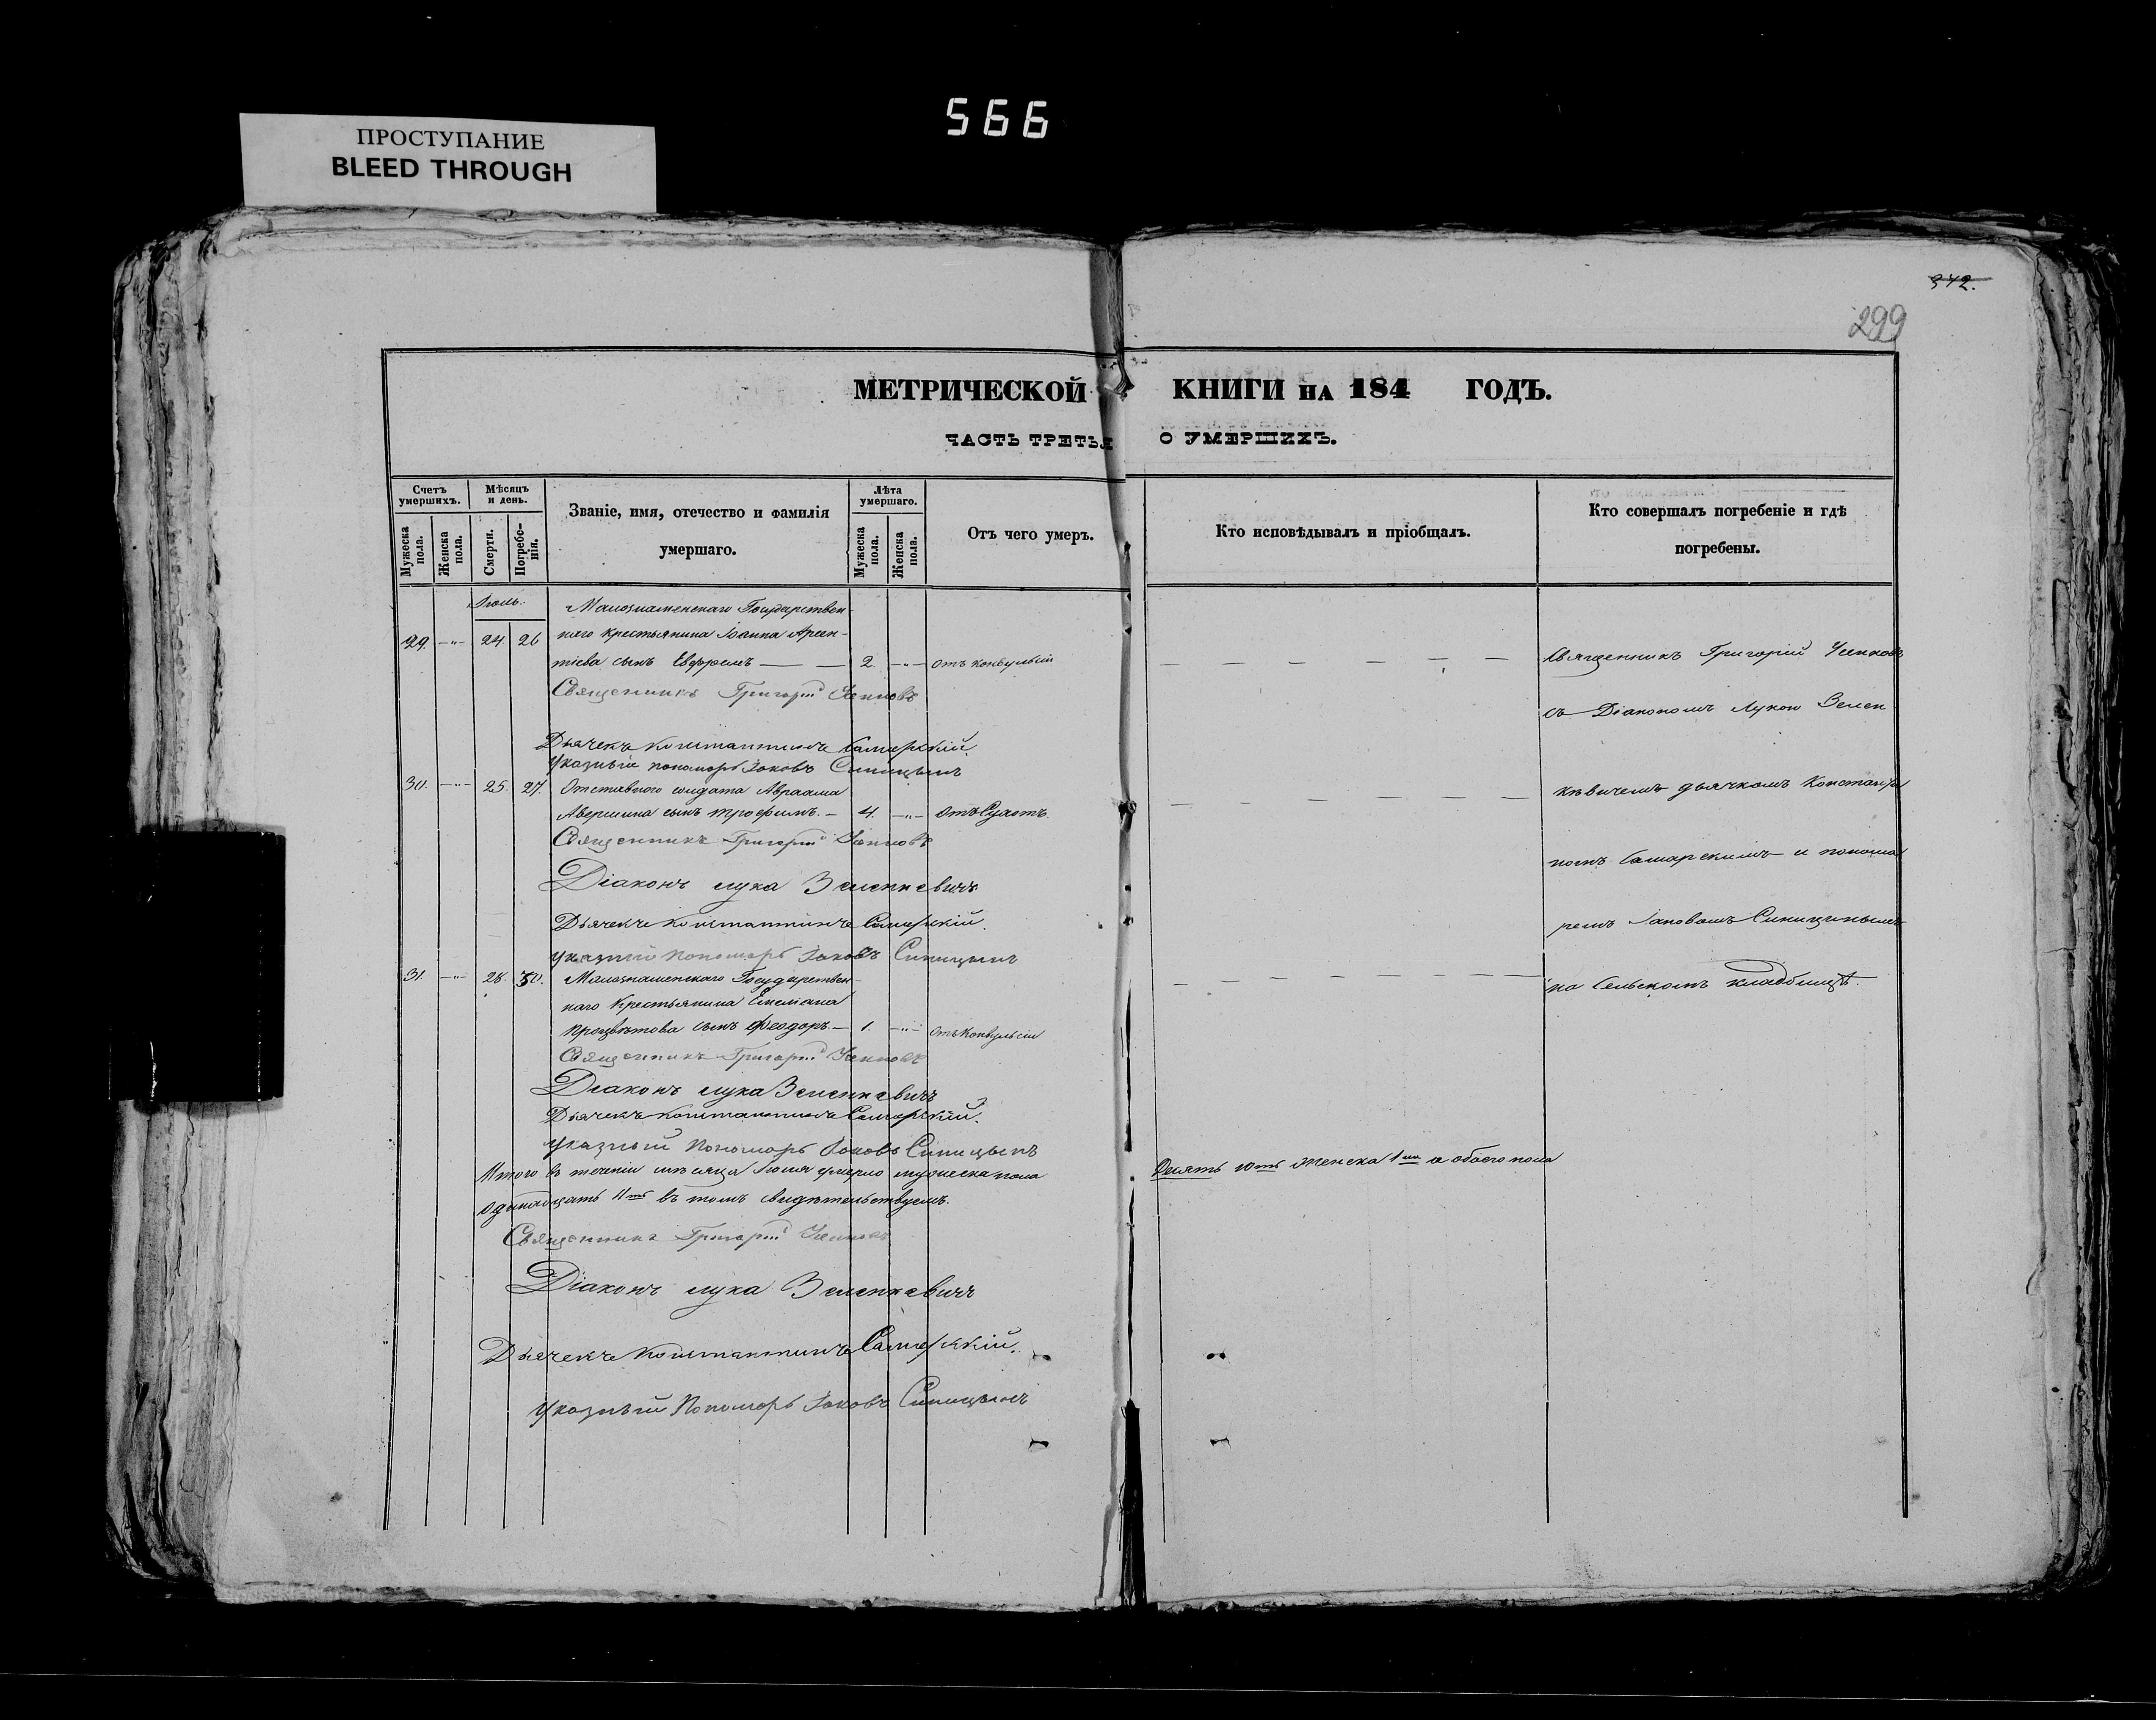 566
ПРОСТУПАНИЕ
BLEED THROUGH
342.
299
МЕТРИЧЕСКОЙ КНИГИ НА 184 ГОДЪ.
ЧАСТЬ ТРЕТЬЯ О УМЕРШИХЪ.
Счетъ умершихъ.
Мужеска пола.
Женска пола.
Мѣсяцъ и день.
Смерти.
Погребенія.
Званіе, имя, отечество и фамилія
умершаго.
Лѣта умершаго.
Мужеска пола.
Женска пола.
Отъ чего умеръ.
Кто исповѣдывалъ и пріобщалъ.
Кто совершалъ погребеніе и гдѣ
погребены.
Іюль.
Малознаменскаго Государствен-
29. —"— 24 26 наго крестьянина Іоанна Арсен-
тіева сынъ Ефремъ — — 2. —"— отъ конвульсіи
Священникъ Григорій Усенковъ
Дьячекъ Константинъ Самарскій.
Указный пономарь Іаковъ Синицынъ
30. —"— 25. 27. Отставнаго солдата Авраама
Авершина сынъ Трофимъ. — 4. —"—
Священникъ Григорій Усенковъ
Діаконъ Лука Зеленкевичъ
Дьячекъ Константинъ Самарскій.
Указный Пономарь Іаковъ Синицынъ
31. —"— 28. 30. Малознаменскаго Государствен-
наго Крестьянина Емеліана
сынъ Феодоръ — 1. —"— отъ конвульсіи
Священникъ Григорій Усенковъ
Діаконъ Лука Зеленкевичъ
Дьячекъ Константинъ Самарскій.
Указный Пономарь Іаковъ Синицынъ
Итого въ теченіи мѣсяца Іюля умерло мужеска пола Десять 10ть женска 1 а обоего пола
одинадцать 11ть въ томъ свидѣтельствуемъ.
Священникъ Григорій Усенковъ
Діаконъ Лука Зеленкевичъ
Дьячекъ Константинъ Самарскій.
Указный Пономарь Іаковъ Синицынъ
Священникъ Григорій Усенковъ
съ Діакономъ Лукою Зелен
кевичемъ дьячкомъ Константи
номъ Самарскимъ и понома
ремъ Іаковомъ Синицинымъ
на Сельскомъ кладбищѣ.